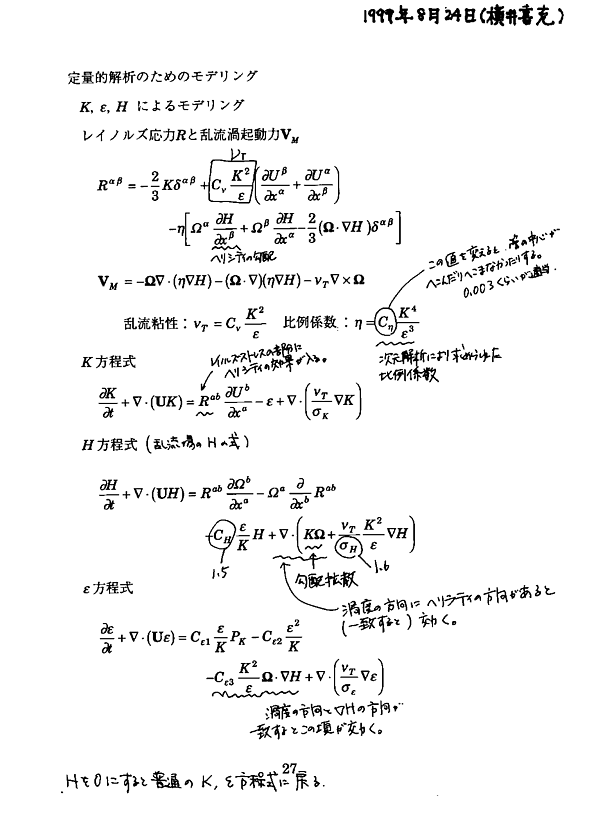 1999年8月24日(横井喜充)
定量的解析のためのモデリング
K, ε, H によるモデリング
レイノルズ応力Rと乱流渦起動力V_M
ν_T
R^{αβ} = -2/3 Kδ^{αβ} + C_ν K^2/ε (∂U^β/∂x^α + ∂U^α/∂x^β)
-η[Ω^α ∂H/∂x^β + Ω^β ∂H/∂x^α - 2/3 (Ω·∇H)δ^{αβ}]
ヘリシティの勾配
この値を変えると、渦の中心が
へこんだりへこまなかったりする。
0.003くらいが適当。
V_M = -Ω∇·(η∇H) - (Ω·∇)(η∇H) - ν_T∇×Ω
乱流粘性：ν_T = C_ν K^2/ε 比例係数：η = C_η K^4/ε^3
次元解析により求められた
比例係数
K 方程式
レイノルズストレスの部分に
ヘリシティの効果が入る。
∂K/∂t + ∇·(UK) = R^{ab} ∂U^b/∂x^a - ε + ∇·(ν_T/σ_K ∇K)
H 方程式 (乱流場の H の式)
∂H/∂t + ∇·(UH) = R^{ab} ∂Ω^b/∂x^a - Ω^a ∂/∂x^b R^{ab}
-C_H ε/K H + ∇·(KΩ + ν_T/σ_H K^2/ε ∇H)
1.5 勾配拡散 1.6
ε 方程式
渦度の方向にヘリシティの方向があると
(一致すると) 効く。
∂ε/∂t + ∇·(Uε) = C_{ε1} ε/K P_K - C_{ε2} ε^2/K
-C_{ε3} K^2/ε Ω·∇H + ∇·(ν_T/σ_ε ∇ε)
渦度の方向と∇Hの方向が
一致するとこの項が効く。
27
Hを0にすると普通の K, ε方程式に戻る.